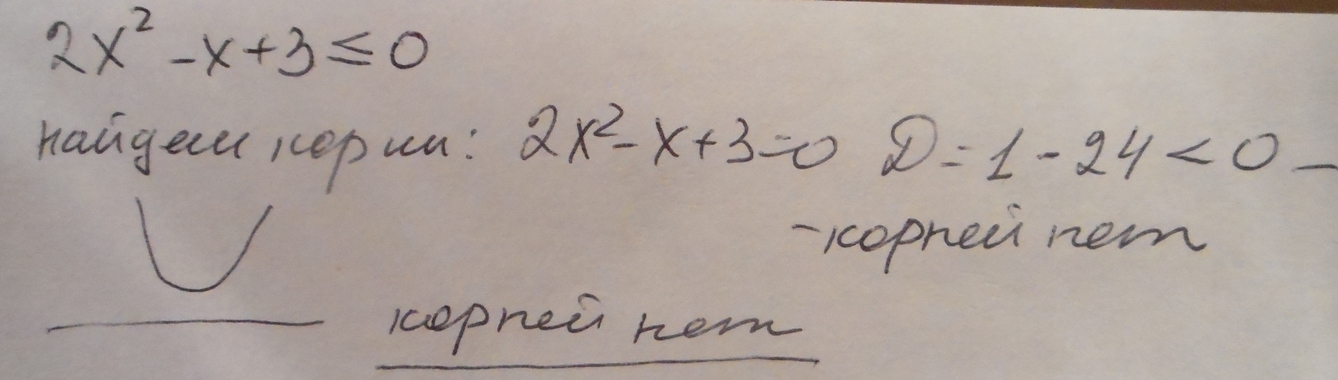 2x² - x + 3 ≤ 0
найдем корни: 2x² - x + 3 = 0 D = 1 - 24 < 0 -
- корней нет
корней нет